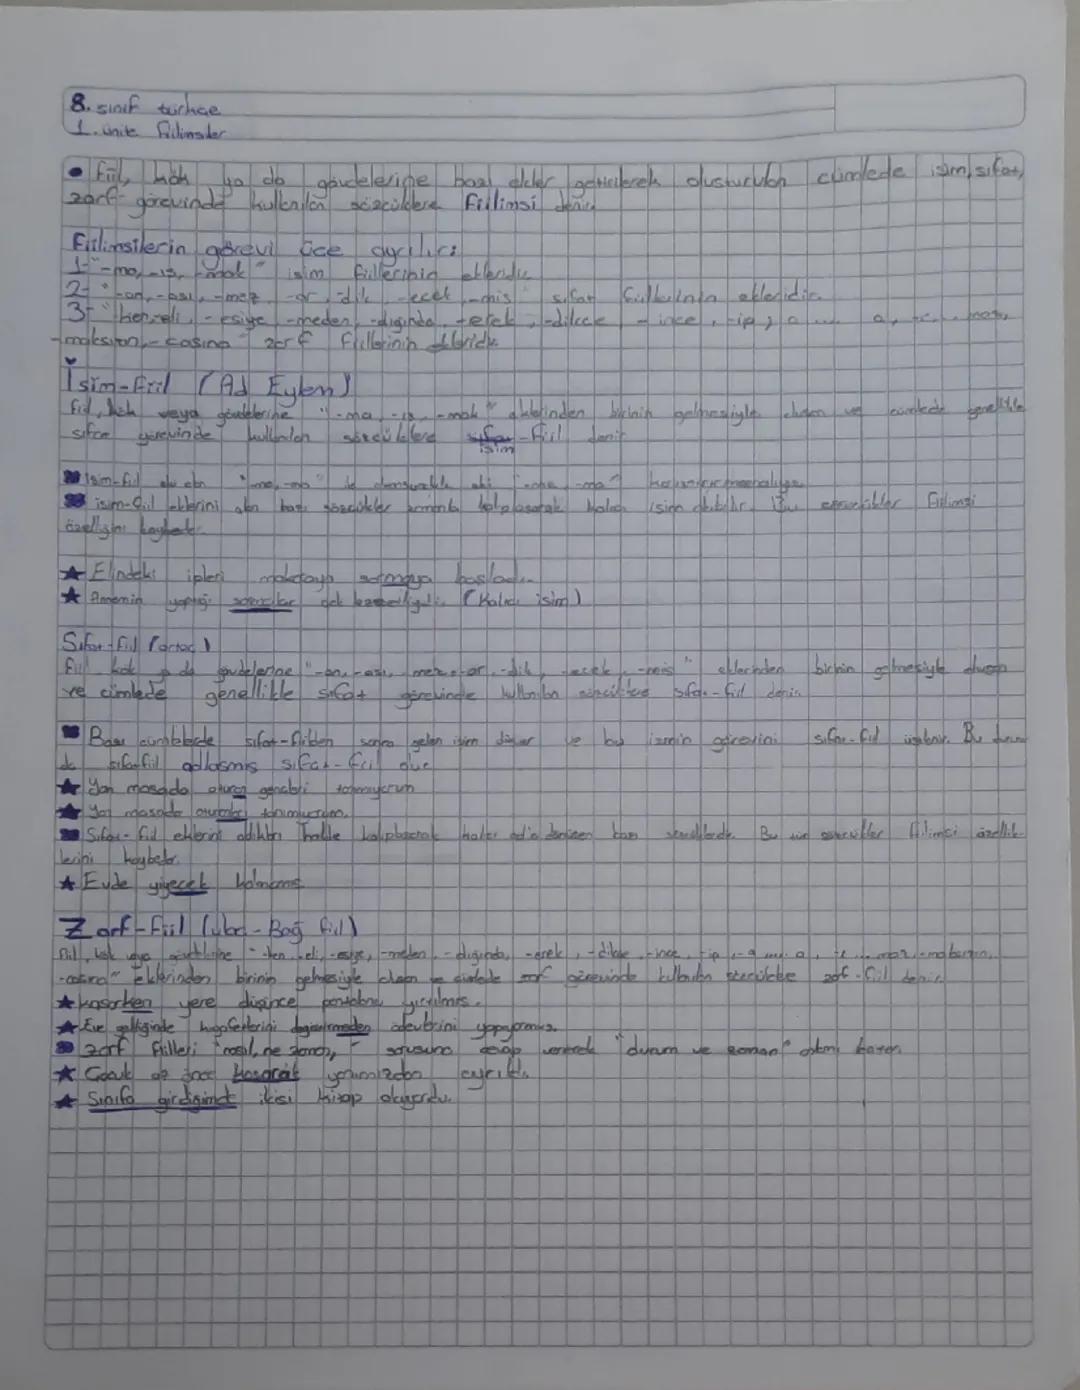 8. sınıf türkçe
1. ünite fiilimsiler
• Fiil, kök ya da gövdelerine bazı ekler getirilerek oluşturulan cümlede isim, sıfat,
zarf görevinde kullanılan sözcüklere Fiilimsi denir.
Fiilimsilerin görevi üçe ayrılır:
1- "-ma, -ış, -mak" isim fiillerinin ekleridir.
2- "-an, -ası, -mez, -ar, -dik, -ecek, -miş" sıfat fiillerinin ekleridir.
3- "ken, -eli, -esiye, -meden, -dığında, -erek, -dikçe, -ince, -ip, a ... a,
-maksızın, -casına" zarf fiillerinin ekleridir.
İsim-fiil (Ad Eylem)
fiil, kök veya gövdelerine "-ma, -ış, -mak" eklerinden birinin gelmesiyle oluşan ve cümlede genellikle
sıfat görevinde kullanılan sözcüklere isim-fiil denir
isim-fiil "-ma, -me" ile olumsuzluk eki "-ma, -me"
isim-fiil eklerini alan bazı sözcükler zamanla kalıplaşarak kalıcı isim olabilir. Bu sözcükler fiilimsi
özelliğini kaybeder.
★ Elindeki ipleri makaraya sarmaya başladı.
★ Annemin yaptığı sarmalar çok (Kalıcı isim)
Sıfat-fiil (ortaç)
fiil kök ya da gövdelerine "-an, -ası, mez, -ar, -dik, -ecek, -miş" eklerinden birinin gelmesiyle oluşan
ve cümlede genellikle sıfat görevinde kullanılan sözcüklere sıfat-fiil denir.
Bazı cümlelerde sıfat-fiilden sonra gelen isim düşer ve bu ismin görevini sıfat-fiil üstlenir. Bu durum
da sıfatfiil adlaşmış sıfat-fiil olur
★ Yan masada oturan gençleri tanımıyorum
★ Yan masada oturanları tanımıyorum.
Sıfat-fiil eklerini aldıkları halde kalıplaşarak kalıcı ada dönüşen bazı Bu tür sözcükler fiilimsi özellik
lerini kaybeder.
★ Evde yiyecek kalmamış
Zarf-fiil (Ulaç-Bağ fiil)
fiil, kök veya gövdelerine "-ken, -eli, -esiye, -meden, -dığında, -erek, -dikçe, -ince, -ip, -a ... a, -r ... maz, -maksızın,
-casına" eklerinden birinin gelmesiyle oluşan ve cümlede zarf görevinde kullanılan sözcüklere zarf-fiil denir.
★ koşarken yere düşünce pantolonu yırtılmış.
★ Eve geldiğinde kıyafetlerini değiştirmeden ödevlerini yapıyormuş.
zarf fiilleri "nasıl, ne zaman," sorusuna cevap vererek "durum ve zaman" anlamı katar.
★ Çocuk az önce koşarak yanımızdan ayrıldı.
★ Sınıfa girdiğimde ikisi kitap okuyordu.